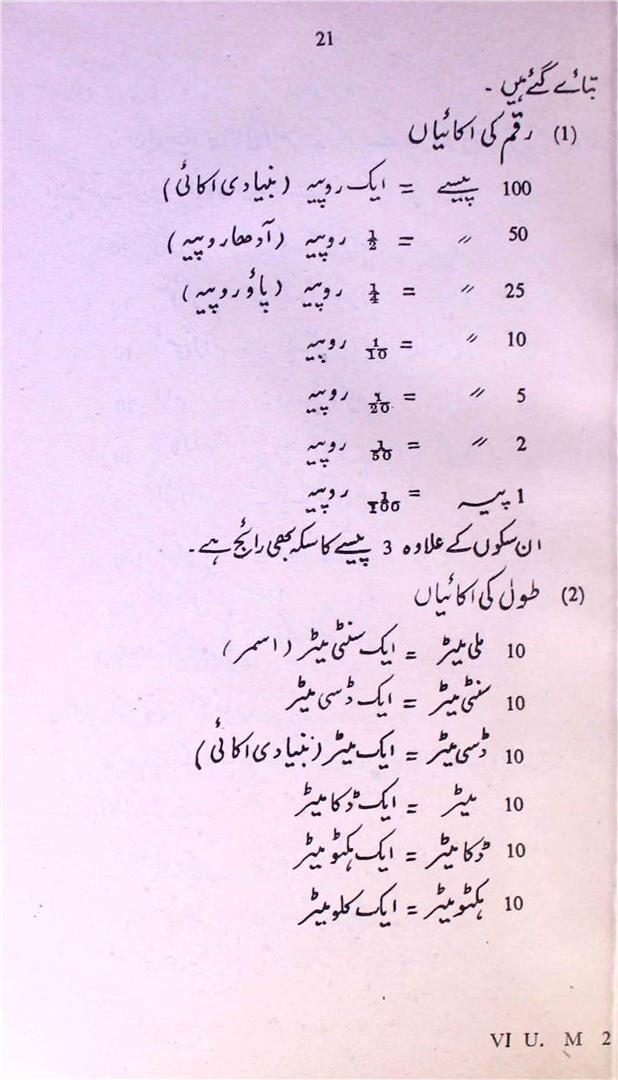 21
بتائے گئے ہیں ۔
(1) رقم کی اکائیاں
100 پیسے = ایک روپیہ (بنیادی اکائی)
50 〃 = 1/2 روپیہ (آدھا روپیہ)
25 〃 = 1/4 روپیہ (پاؤ روپیہ)
10 〃 = 1/10 روپیہ
5 〃 = 1/20 روپیہ
2 〃 = 1/50 روپیہ
1 پیسہ = 1/100 روپیہ
ان سکوں کے علاوہ 3 پیسے کا سکہ بھی رائج ہے۔
(2) طول کی اکائیاں
10 ملی میٹر = ایک سنٹی میٹر (اسمر)
10 سنٹی میٹر = ایک ڈسی میٹر
10 ڈسی میٹر = ایک میٹر (بنیادی اکائی)
10 میٹر = ایک ڈکا میٹر
10 ڈکا میٹر = ایک ہکٹو میٹر
10 ہکٹو میٹر = ایک کلو میٹر
VI U. M 2